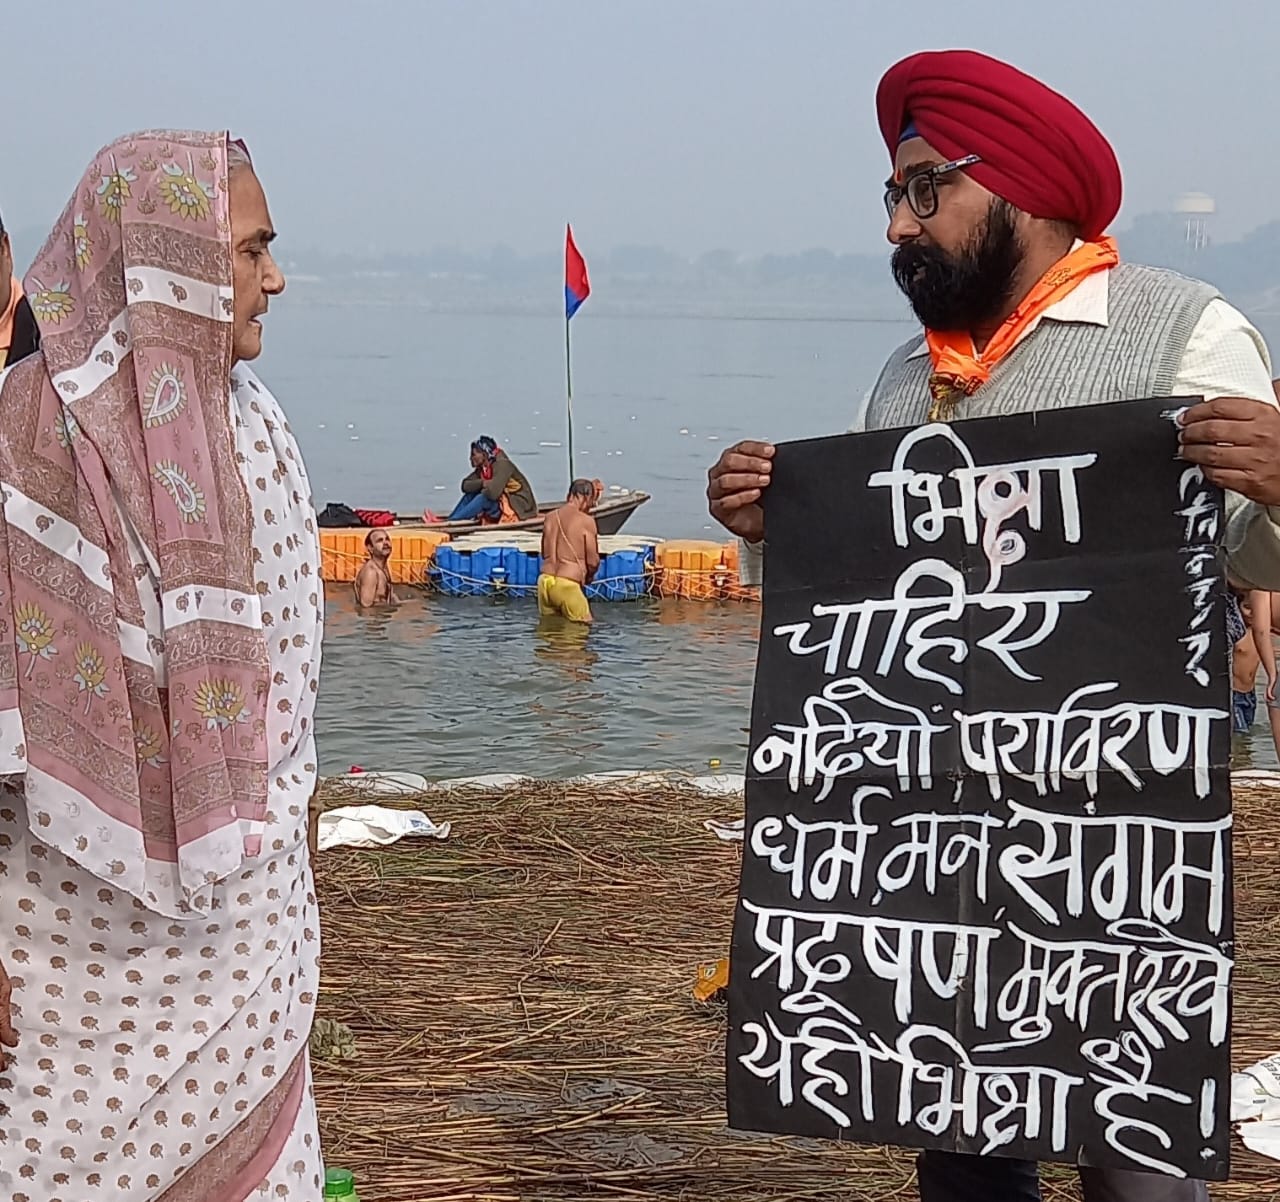 भिक्षा
चाहिए
नदियों पर्यावरण
धर्म, मन, संगम
प्रदूषण मुक्त रखे
यही भिक्षा है!